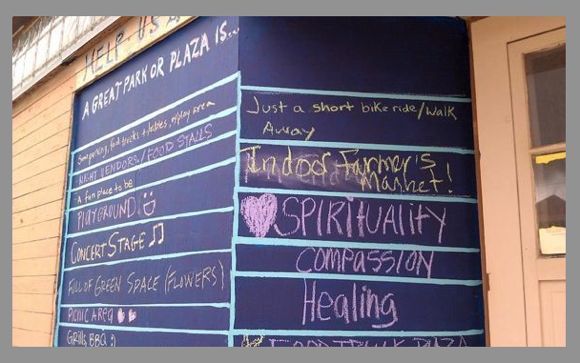 HELP US
A GREAT PARK OR PLAZA IS...
Some parking, food trucks + tables, w/play area
NIGHT VENDORS / FOOD STALLS
A fun place to be
PLAYGROUND!
CONCERT STAGE ♫
FULL OF GREEN SPACE (FLOWERS)
PICNIC AREA
Grills BBQ :)
Just a short bike ride/walk
Away
Indoor Farmer's
Market!
SPIRITUALITY
COMPASSION
Healing
FOOD TRUCK PLAZA